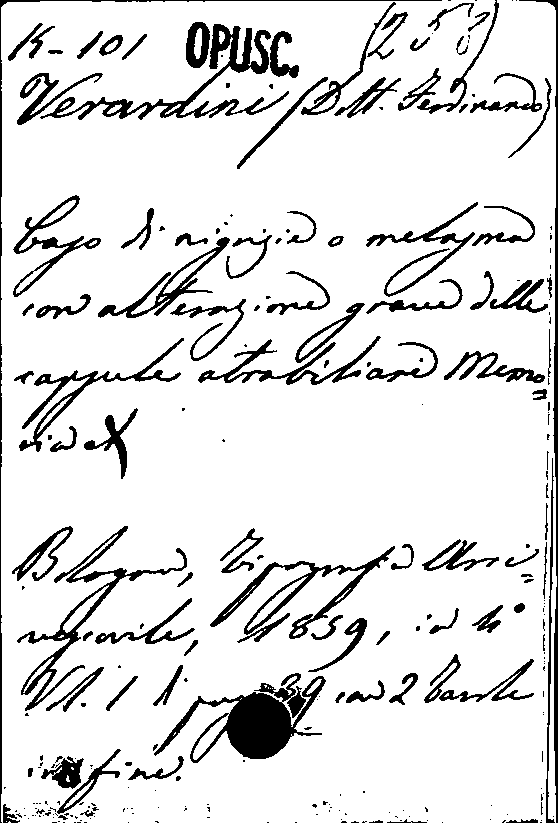 K-101 OPUSC. (258)
Verardini (Dott. Ferdinando)
Caso di nigrizie o melasma
con alterazione grave delle
capsule atrabiliari Memo=
ria
Bologna, Tipografia Arci=
vescovile, 1859, in 4°
Vol. 1 di pag. 39 con 2 Tavole
in fine.